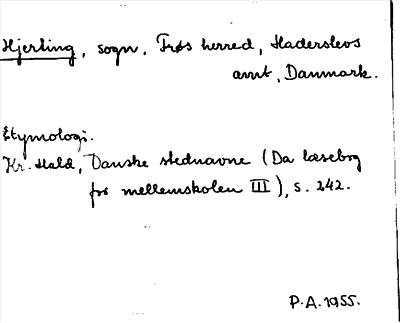 Hjerting, sogn. Frøs herred, Haderslevs
amt, Danmark.
Etymologi.
Kr. Hald, Danske stednavne (Da læsebog
for mellemskolen III), s. 242.
P.A. 1955.